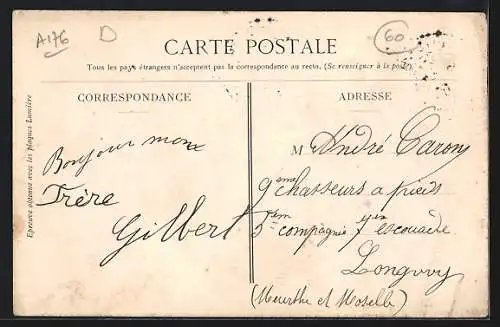 A176
D
60
CARTE POSTALE
Tous les pays étrangers n'acceptent pas la correspondance au recto. (Se renseigner à la poste)
CORRESPONDANCE
ADRESSE
Epreuve obtenue avec les plaques Lumière
Bonjour mon
Frère
Gilbert
M André Caron
9 eme chasseurs a pieds
5 em compagnie 7 em escouade
Longwy
(Meurthe et Moselle)